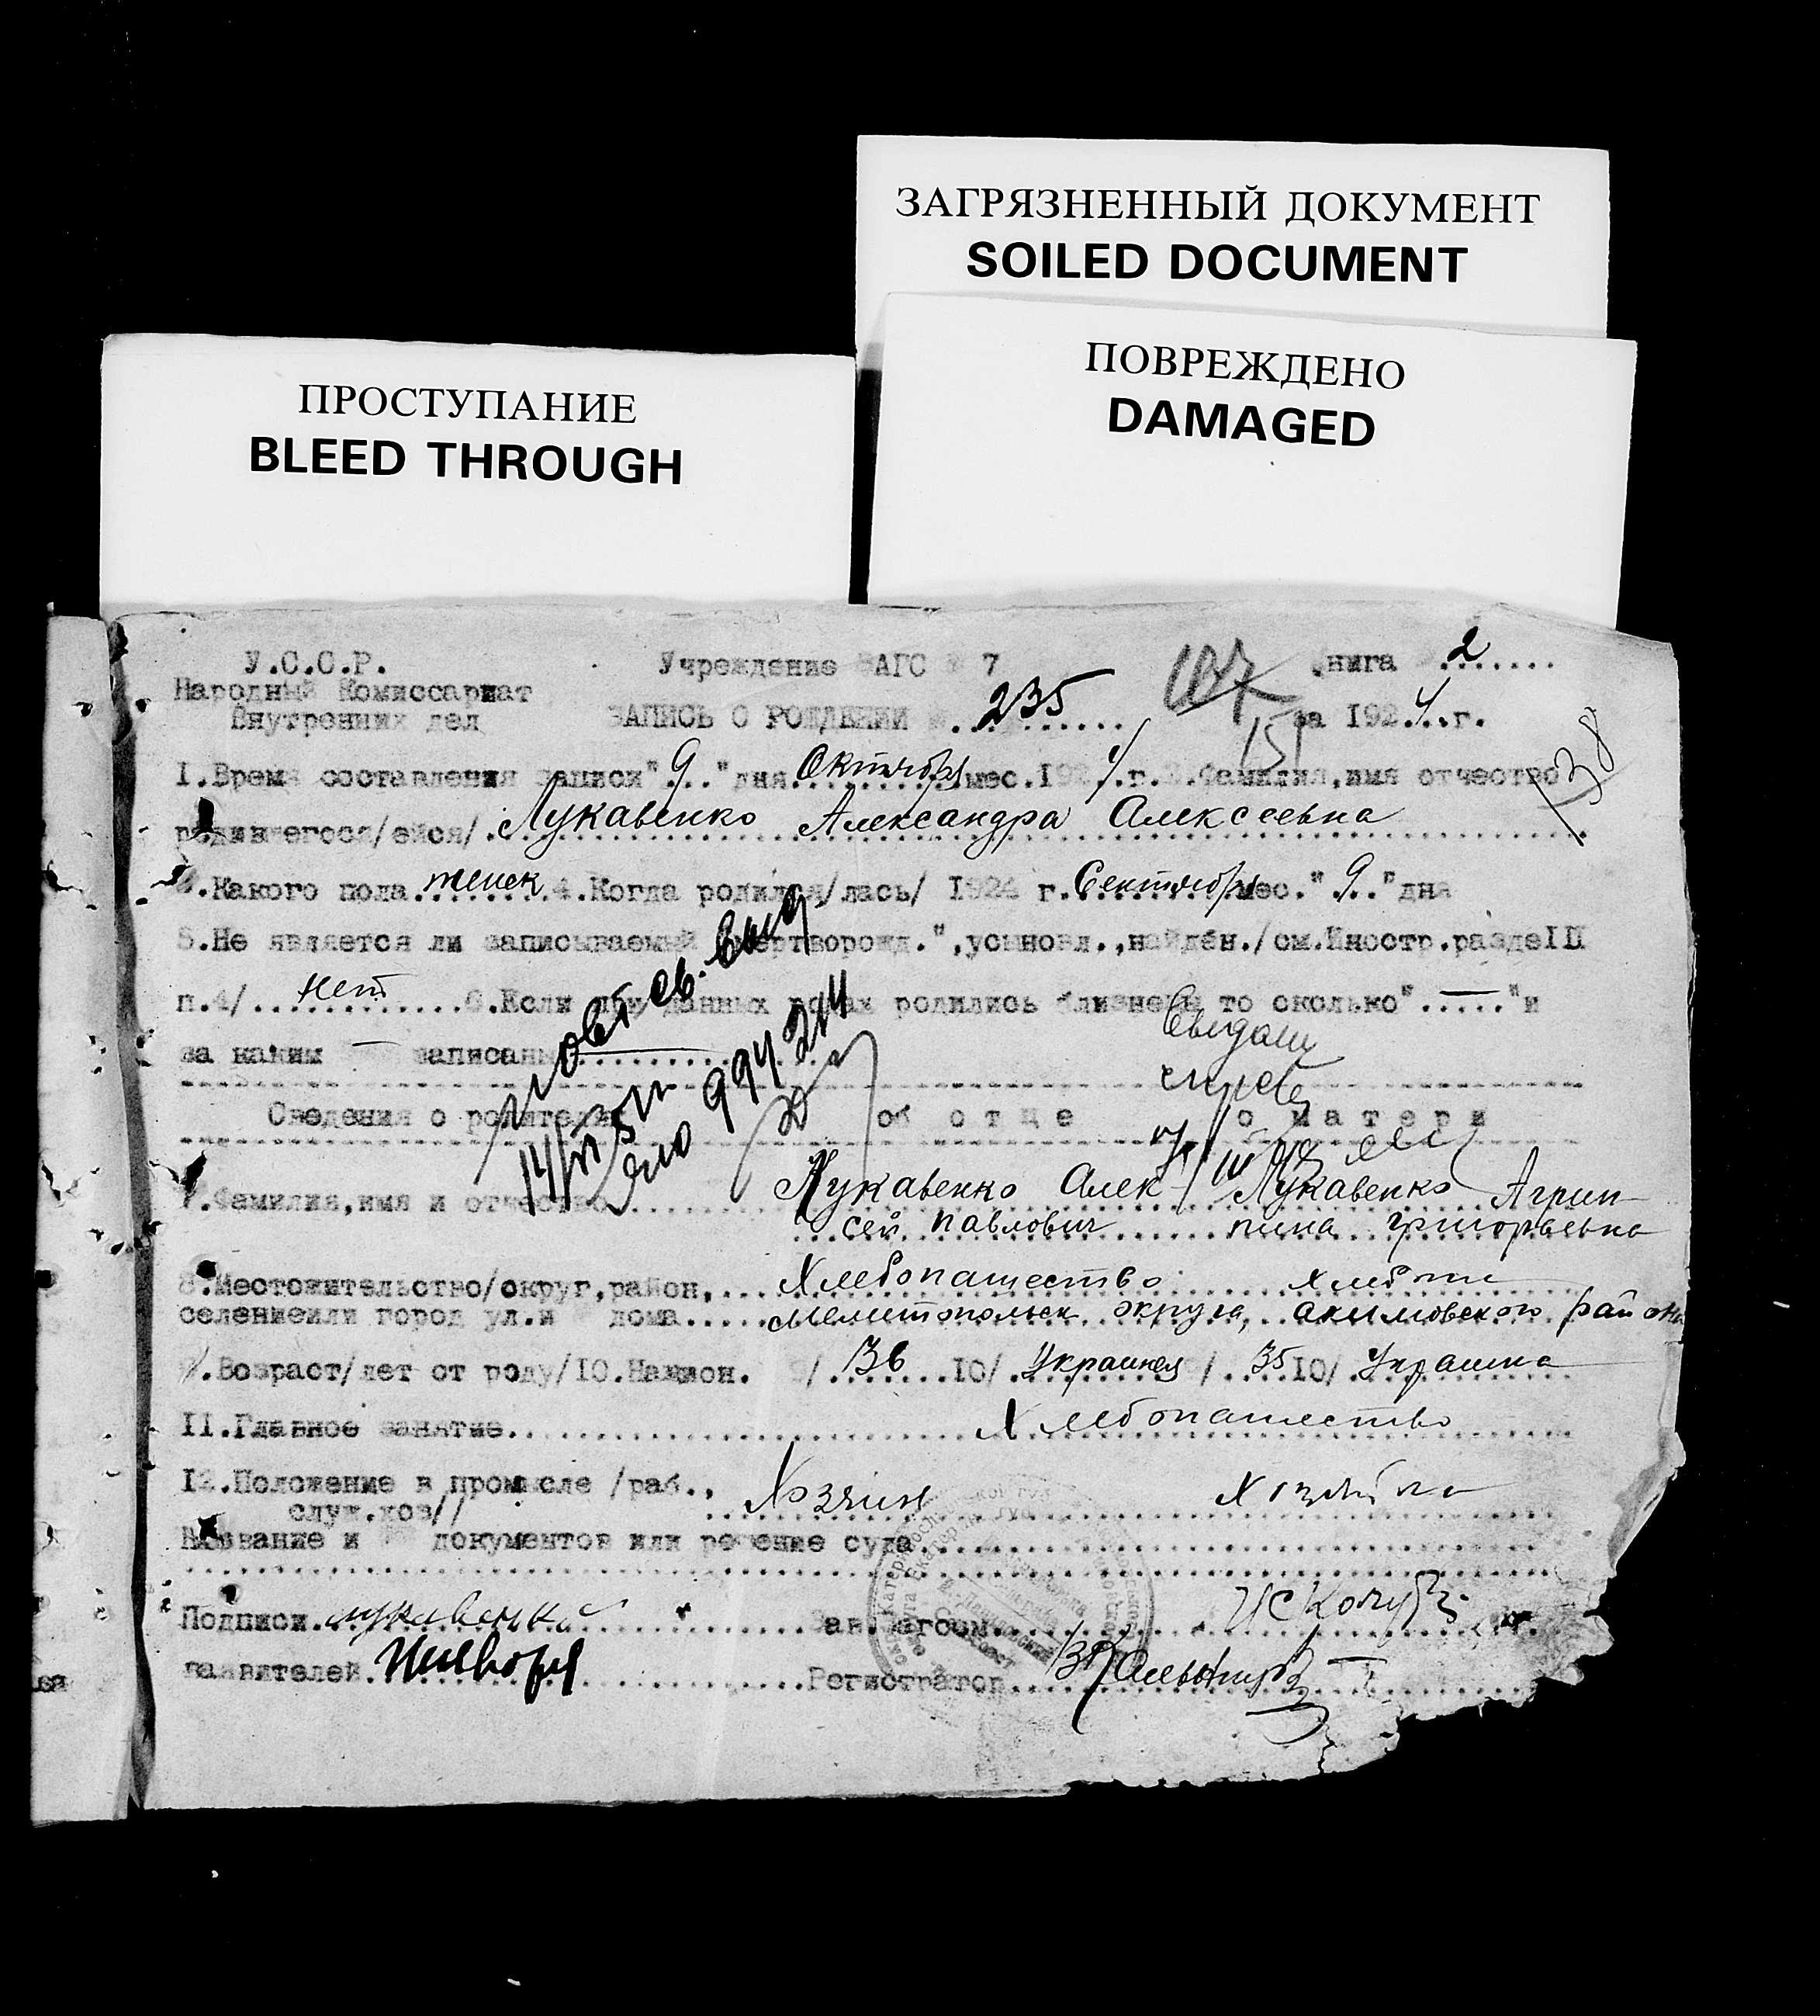 ЗАГРЯЗНЕННЫЙ ДОКУМЕНТ
SOILED DOCUMENT
ПОВРЕЖДЕНО
DAMAGED
ПРОСТУПАНИЕ
BLEED THROUGH
У.С.С.Р. Учреждение ЗАГС № 7 Книга № 2
Народный Комиссариат
Внутренних дел ЗАПИСЬ О РОЖДЕНИИ № 235 за 1924 г.
151
138
1.Время составления записи "9" дня Октября мес.1924 г. 2.Фамилия,имя отчество
родившегося/ейся/ Лукавенко Александра Алексеевна
3.Какого пола женск 4.Когда родился/лась/ 1924 г. Сентября мес. "9" дня
5.Не является ли записываемый "мертворожд.",усыновл.,найден./см.Инстр.разделII
п.4/ нет 6.Если при данных родах родились близнецы то сколько "—" и
за каким — записаны
повт св. выд.
994244
Сведения о родителях об отце о матери
7.Фамилия,имя и отчество Лукавенко Алек- Лукавенко Агрип-
сей Павлович пина Григорьевна
8.Местожительство/округ,район, Хлебопашество хлебопаш
селениеили город ул.и № дома Мелитопольск округа, акимовского района
9.Возраст/лет от роду/10.Национ. 9/ 36 10/ Украинец 9/ 35 10/ Украинка
11.Главное занятие Хлебопашество
12.Положение в промысле /раб., Хозяин Хозяйка
служ.хоз//
Название и № документов или решение суда
Подписи Лукавенко Зав.Загсом
заявителей Регистратор